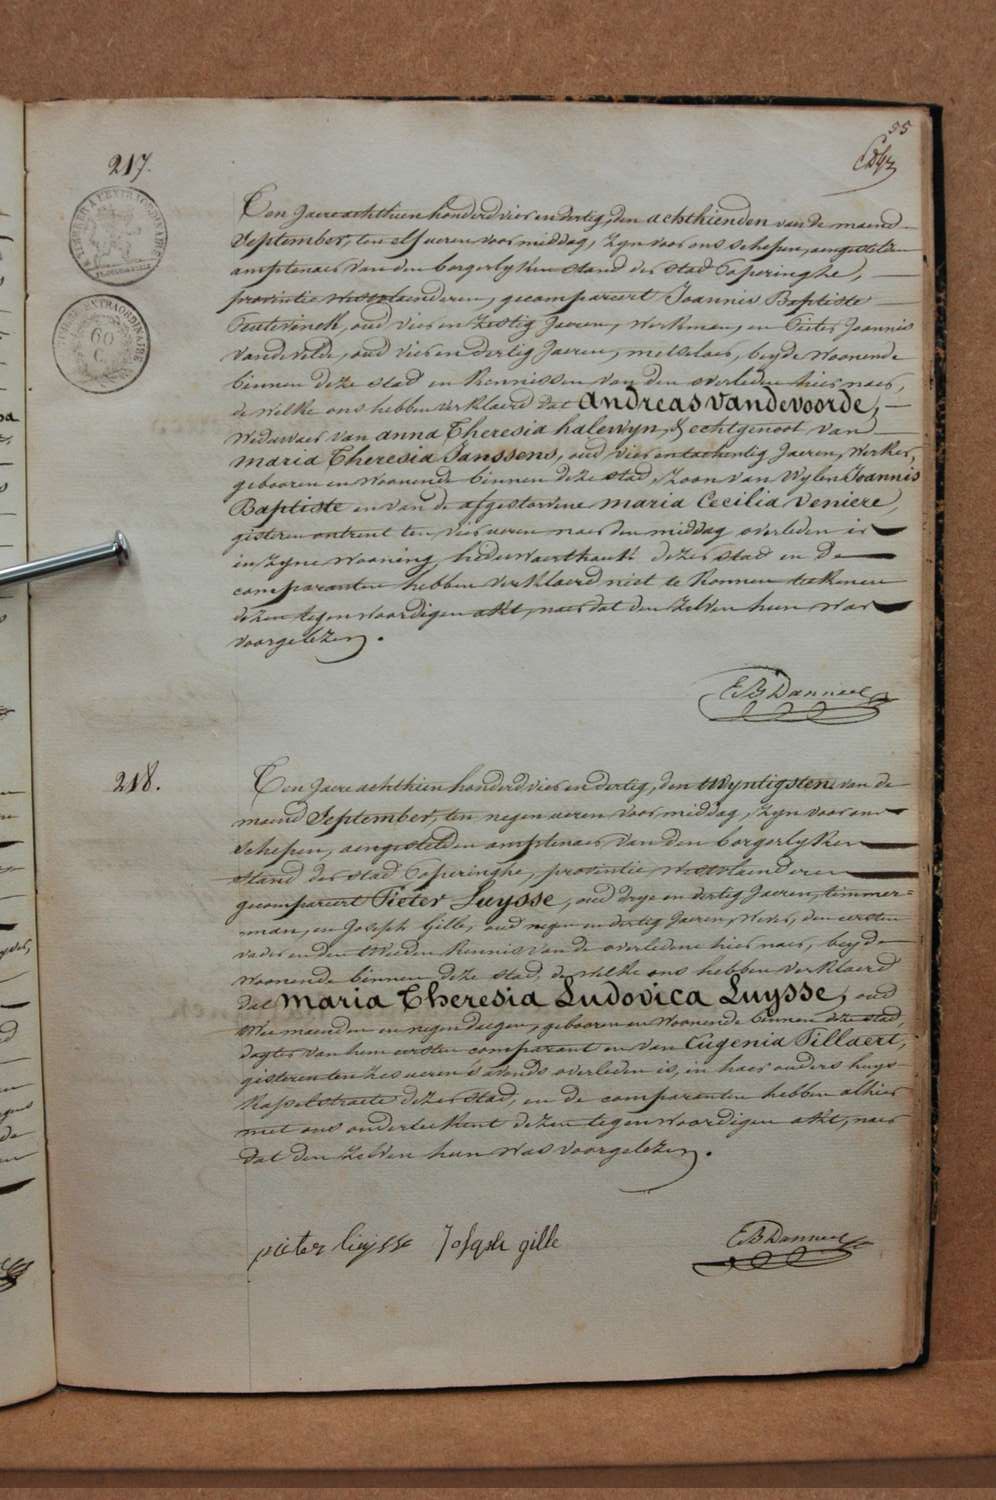 55
217.
Ten Jaere achthien honderd vier en dertig, den achthienden van de maend
September, ten elf ueren voor middag, zyn voor ons schepen, aengestelden
amptenaer van den borgerlyken stand der stad Poperinghe,
provintie Westvlaenderen, gecompareert Joannes Baptiste
oud vier en zestig Jaeren, werkman, en Pieter Joannis
Vandevelde, oud vier en dertig Jaeren, metselaer, beyde woonende
binnen deze stad en kennissen van den overleden hier naer,
de welke ons hebben verklaerd dat Andreas Vandevoorde,
Weduwaer van anna Theresia halewyn, & echtgenoot van
Maria Theresia Janssens, oud vier en tachentig Jaeren, Werker,
gebooren en woonende binnen deze stad, Zoon van wylen Joannis
Baptiste en van de afgestorvene maria Cecilia Veniere,
gisteren ontrent ten vier ueren naer den middag overleden is
in zyne wooning, dezer stad en de
comparanten hebben verklaerd niet te konnen teekenen
dezen tegenwoordigen akt, naer dat den zelven hun was
voorgelezen.
EB Danneel
218.
Ten Jaere achthien honderd vier en dertig, den twyntigsten van de
maend September, ten negen ueren voor middag, zyn voor ons
schepen, aengestelden amptenaer van den borgerlyken
stand der stad Poperinghe, provintie Westvlaenderen
gecompareert Pieter Luysse, oud drye en dertig Jaeren, timmer=
man, en Joseph Gille, oud negen en dertig Jaeren, Wever, den eersten
vader en den tweeden kennis van de overledene hier naer, beyde
woonende binnen deze stad, de welke ons hebben verklaerd
dat Maria Theresia Ludovica Luysse, oud
twee maenden en negen daegen, gebooren en woonende binnen deze stad,
dogter van hem eersten comparant en van Eugenia Tillaert,
gisteren ten zes ueren s'avonds overleden is, in haer ouders huys
Kapelstraete dezer stad, en de comparanten hebben alhier
met ons onderteekent dezen tegenwoordigen akt, naer
dat den zelven hun was voorgelezen.
pieter luysse Joseph gille
EB Danneel
60
C.